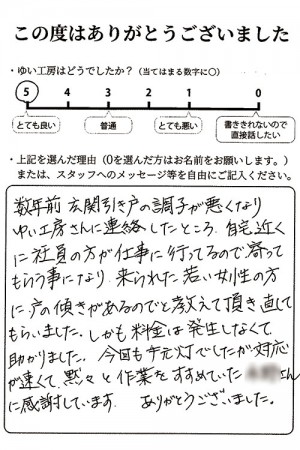 この度はありがとうございました
・ゆい工房はどうでしたか？（当てはまる数字に○）
5 4 3 2 1 0
とても良い 普通 とても悪い 書ききれないので直接話したい
・上記を選んだ理由（0を選んだ方はお名前をお願いします。）
または、スタッフへのメッセージ等を自由にご記入ください。
数年前 玄関引き戸の調子が悪くなり
ゆい工房さんに連絡したところ、自宅近く
に社員の方が仕事に行ってるので寄って
もらう事になり 来られた若い女性の方
に戸の傾きがあるのでと教えて頂き直して
もらいました。しかも料金は発生しなくて
助かりました。今回も手元灯でしたが対応
が速くて、黙々と作業をすすめていた さん
に感謝しています。ありがとうございました。